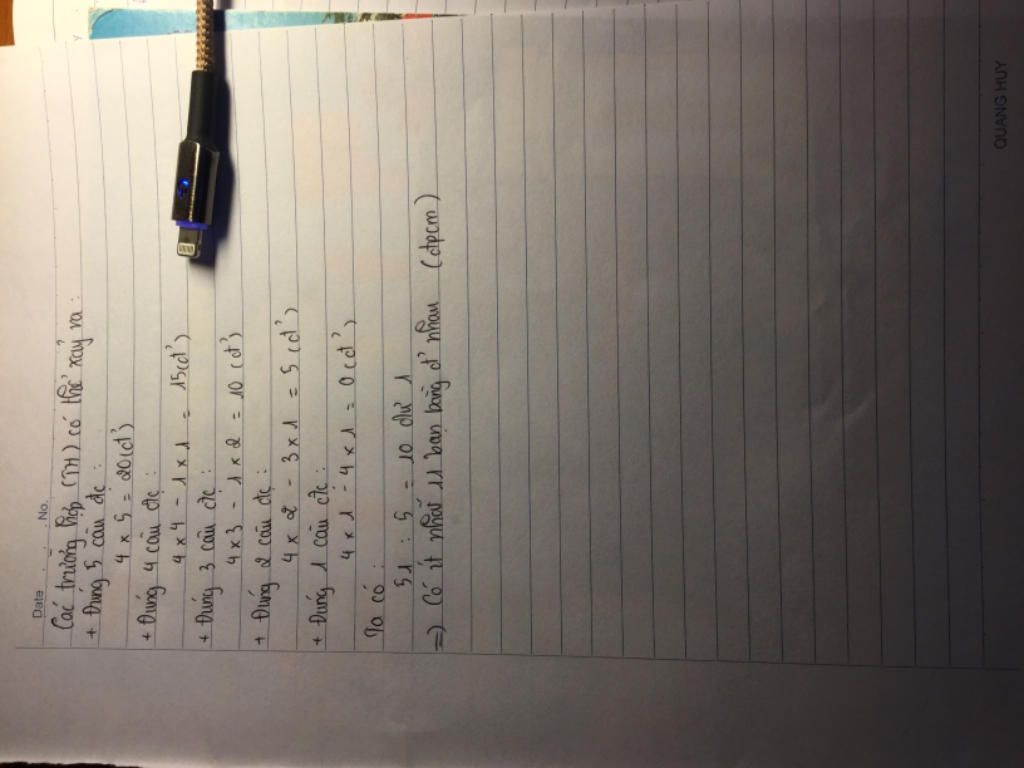 Date No.
Các trường hợp (TH) có thể xảy ra:
+ Đúng 5 câu đc:
4 x 5 = 20 (đ')
+ Đúng 4 câu đc:
4 x 4 - 1 x 1 = 15 (đ')
+ Đúng 3 câu đc:
4 x 3 - 1 x 2 = 10 (đ')
+ Đúng 2 câu đc:
4 x 2 - 3 x 1 = 5 (đ')
+ Đúng 1 câu đc:
4 x 1 - 4 x 1 = 0 (đ')
Ta có:
51 : 5 = 10 dư 1
=) Có ít nhất 11 bạn bằng đ' nhau (đpcm)
QUANG HUY